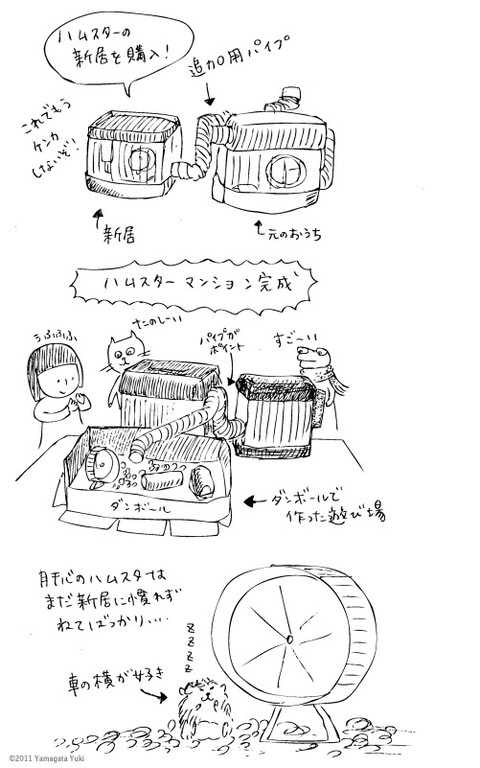 ハムスターの
新居を購入!
追加用パイプ
これでもう
ケンカ
しないぞ!
新居
元のおうち
ハムスターマンション完成
うふふふ
たのしーい
パイプが
ポイント
すご〜い
ダンボール
ダンボールで
作った遊び場
肝心のハムスターは
まだ新居に慣れず
ねてばっかり...
z
z
z
z
車の横が好き
©2011 Yamagata Yuki